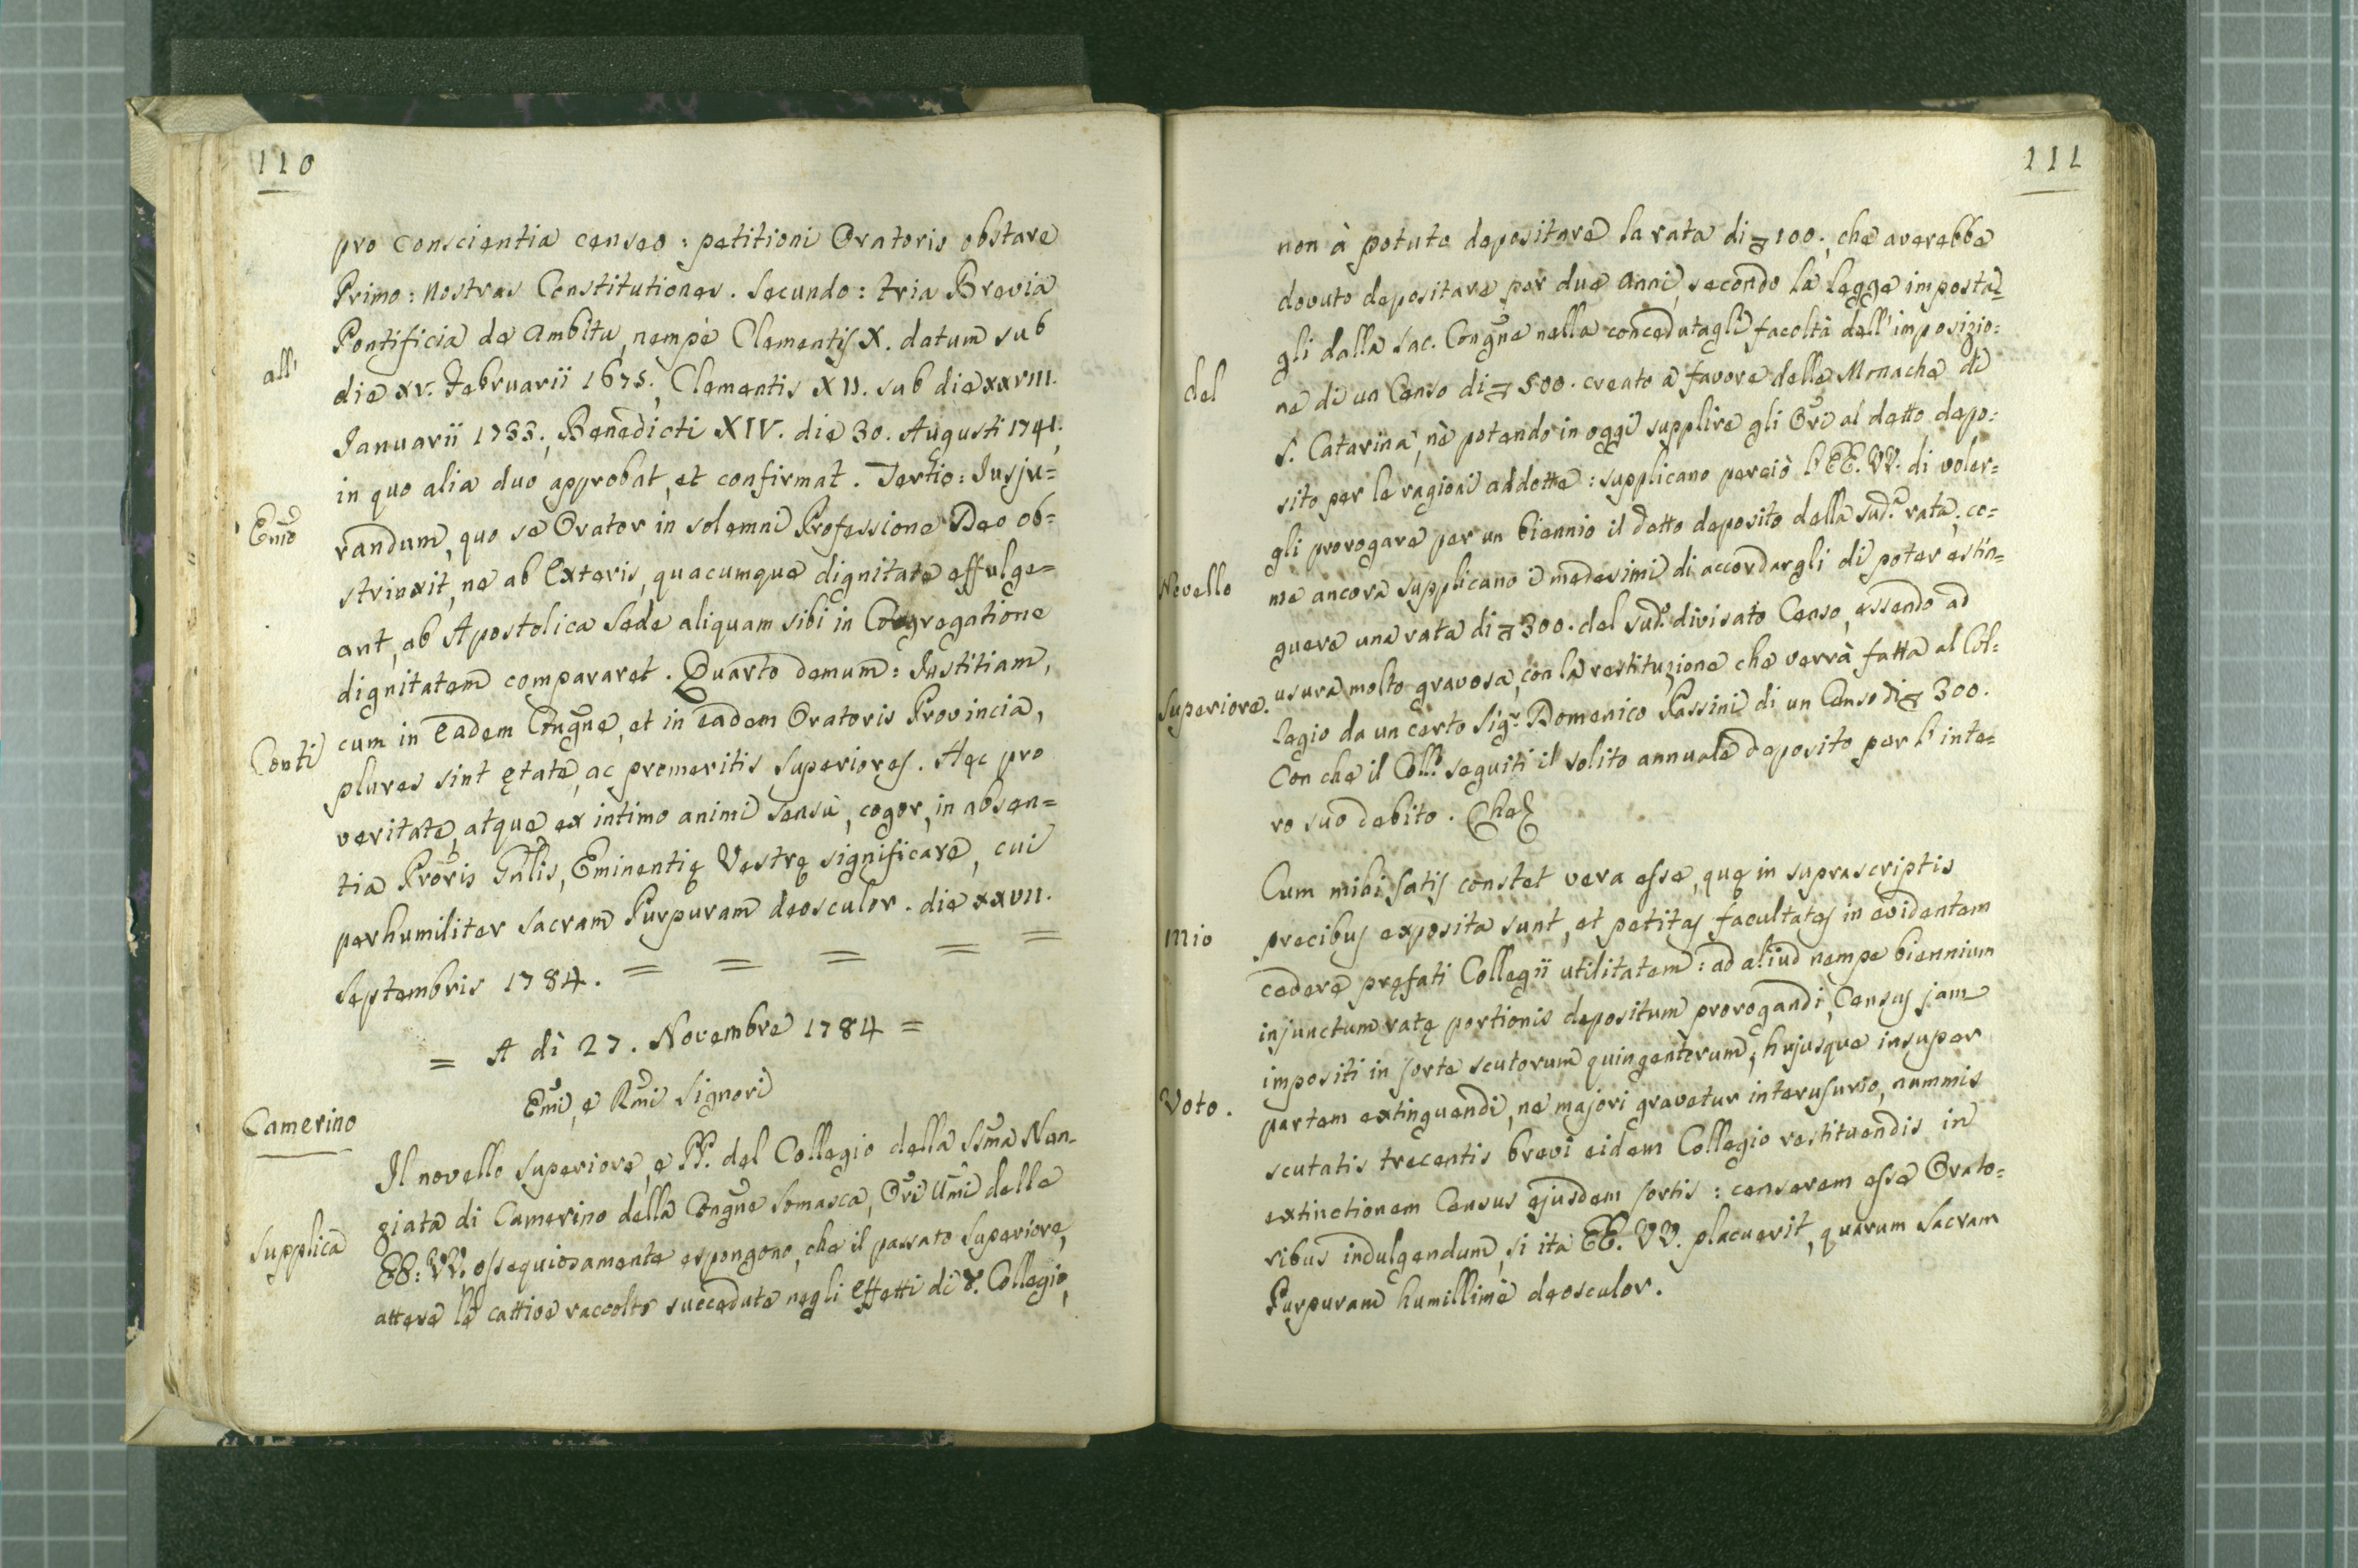 110
pro conscientia censeo : petitioni Oratoris obstare
Primo : nostras Constitutiones . Secundo : tria Brevia
Pontificia de Ambitu, nempè Clementis X. datum sub
all'
die XV. Februarii 1675., Clementis XII. sub die XXVIII.
Januarii 1733., Benedicti XIV. die 30. Augusti 1741.,
in quo alia duo approbat, et confirmat . Tertio : Jusju=
Emo
randum, quo se Orator in solemni Professione Deo ob=
strinxit, ne ab Exteris, quacumque dignitate effulge=
ant, ab Apostolica Sede aliquam sibi in Congregatione
dignitatem compararet . Quarto demum : Justitiam,
Conti
cum in eadem Congne, et in eadem Oratoris Provincia,
plures sint ętate, ac promeritis superiores . Hęc pro
veritate, atque ex intimo animi sensu, cogor, in absen=
tia Proris Gnlis, Eminentię Vestrę significare, cui
perhumiliter Sacram Purpuram deosculor . die XXVII.
Septembris 1784. = = = = =
= A dì 27. Novembre 1784 =
Emi, e Rmi Signori
Camerino
Il novello Superiore, e PP. del Collegio della Ssma Nun-
ziata di Camerino della Congne Somasca, Ori Umi delle
Supplica
EE: VV. ossequiosamente espongono, che il passato Superiore,
attese le cattive raccolte succedute negli effetti di d. Collegio,
111
non à potuto depositare la rata di 100., che averebbe
dovuto depositare per due anni, secondo la legge imposta=
gli dalla Sac. Congne nella concedutagli facoltà dell'imposizio=
del
ne di un Censo di 500. creato a favore delle Monache di
S. Catarina, nè potendo in oggi supplire gli Ori al detto depo=
sito per le ragioni addotte : supplicano perciò l'EE. VV. di voler=
gli prorogare per un biennio il detto deposito della sud.a rata, co=
Novello
me ancora supplicano i medesimi di accordargli di poter estin=
guere una rata di 300. del sud.o divisato Censo, essendo ad
Superiore.
usura molto gravosa, con la restituzione che verrà fatta al Col=
legio da un certo Sig.r Domenico Passini di un Censo di 300.
Con che il Coll.o seguiti il solito annuale deposito per l'inte=
ro suo debito . Che
Cum mihi satis constet vera esse, quę in suprascriptis
mio
precibus exposita sunt, et petitas facultates in evidentem
cedere pręfati Collegii utilitatem : ad aliud nempe biennium
injunctum ratę portionis depositum prorogandi, Census jam
impositi in sorte scutorum quingentorum, hujusque insuper
Voto.
partem extinguendi, ne majori gravetur interusurio, nummis
scutatis trecentis brevi eidem Collegio restituendis in
extinctionem Census ejusdem sortis : censerem esse Orato=
ribus indulgendum, si ita EE. VV. placuerit, quarum Sacram
Purpuram humillimè deosculor.